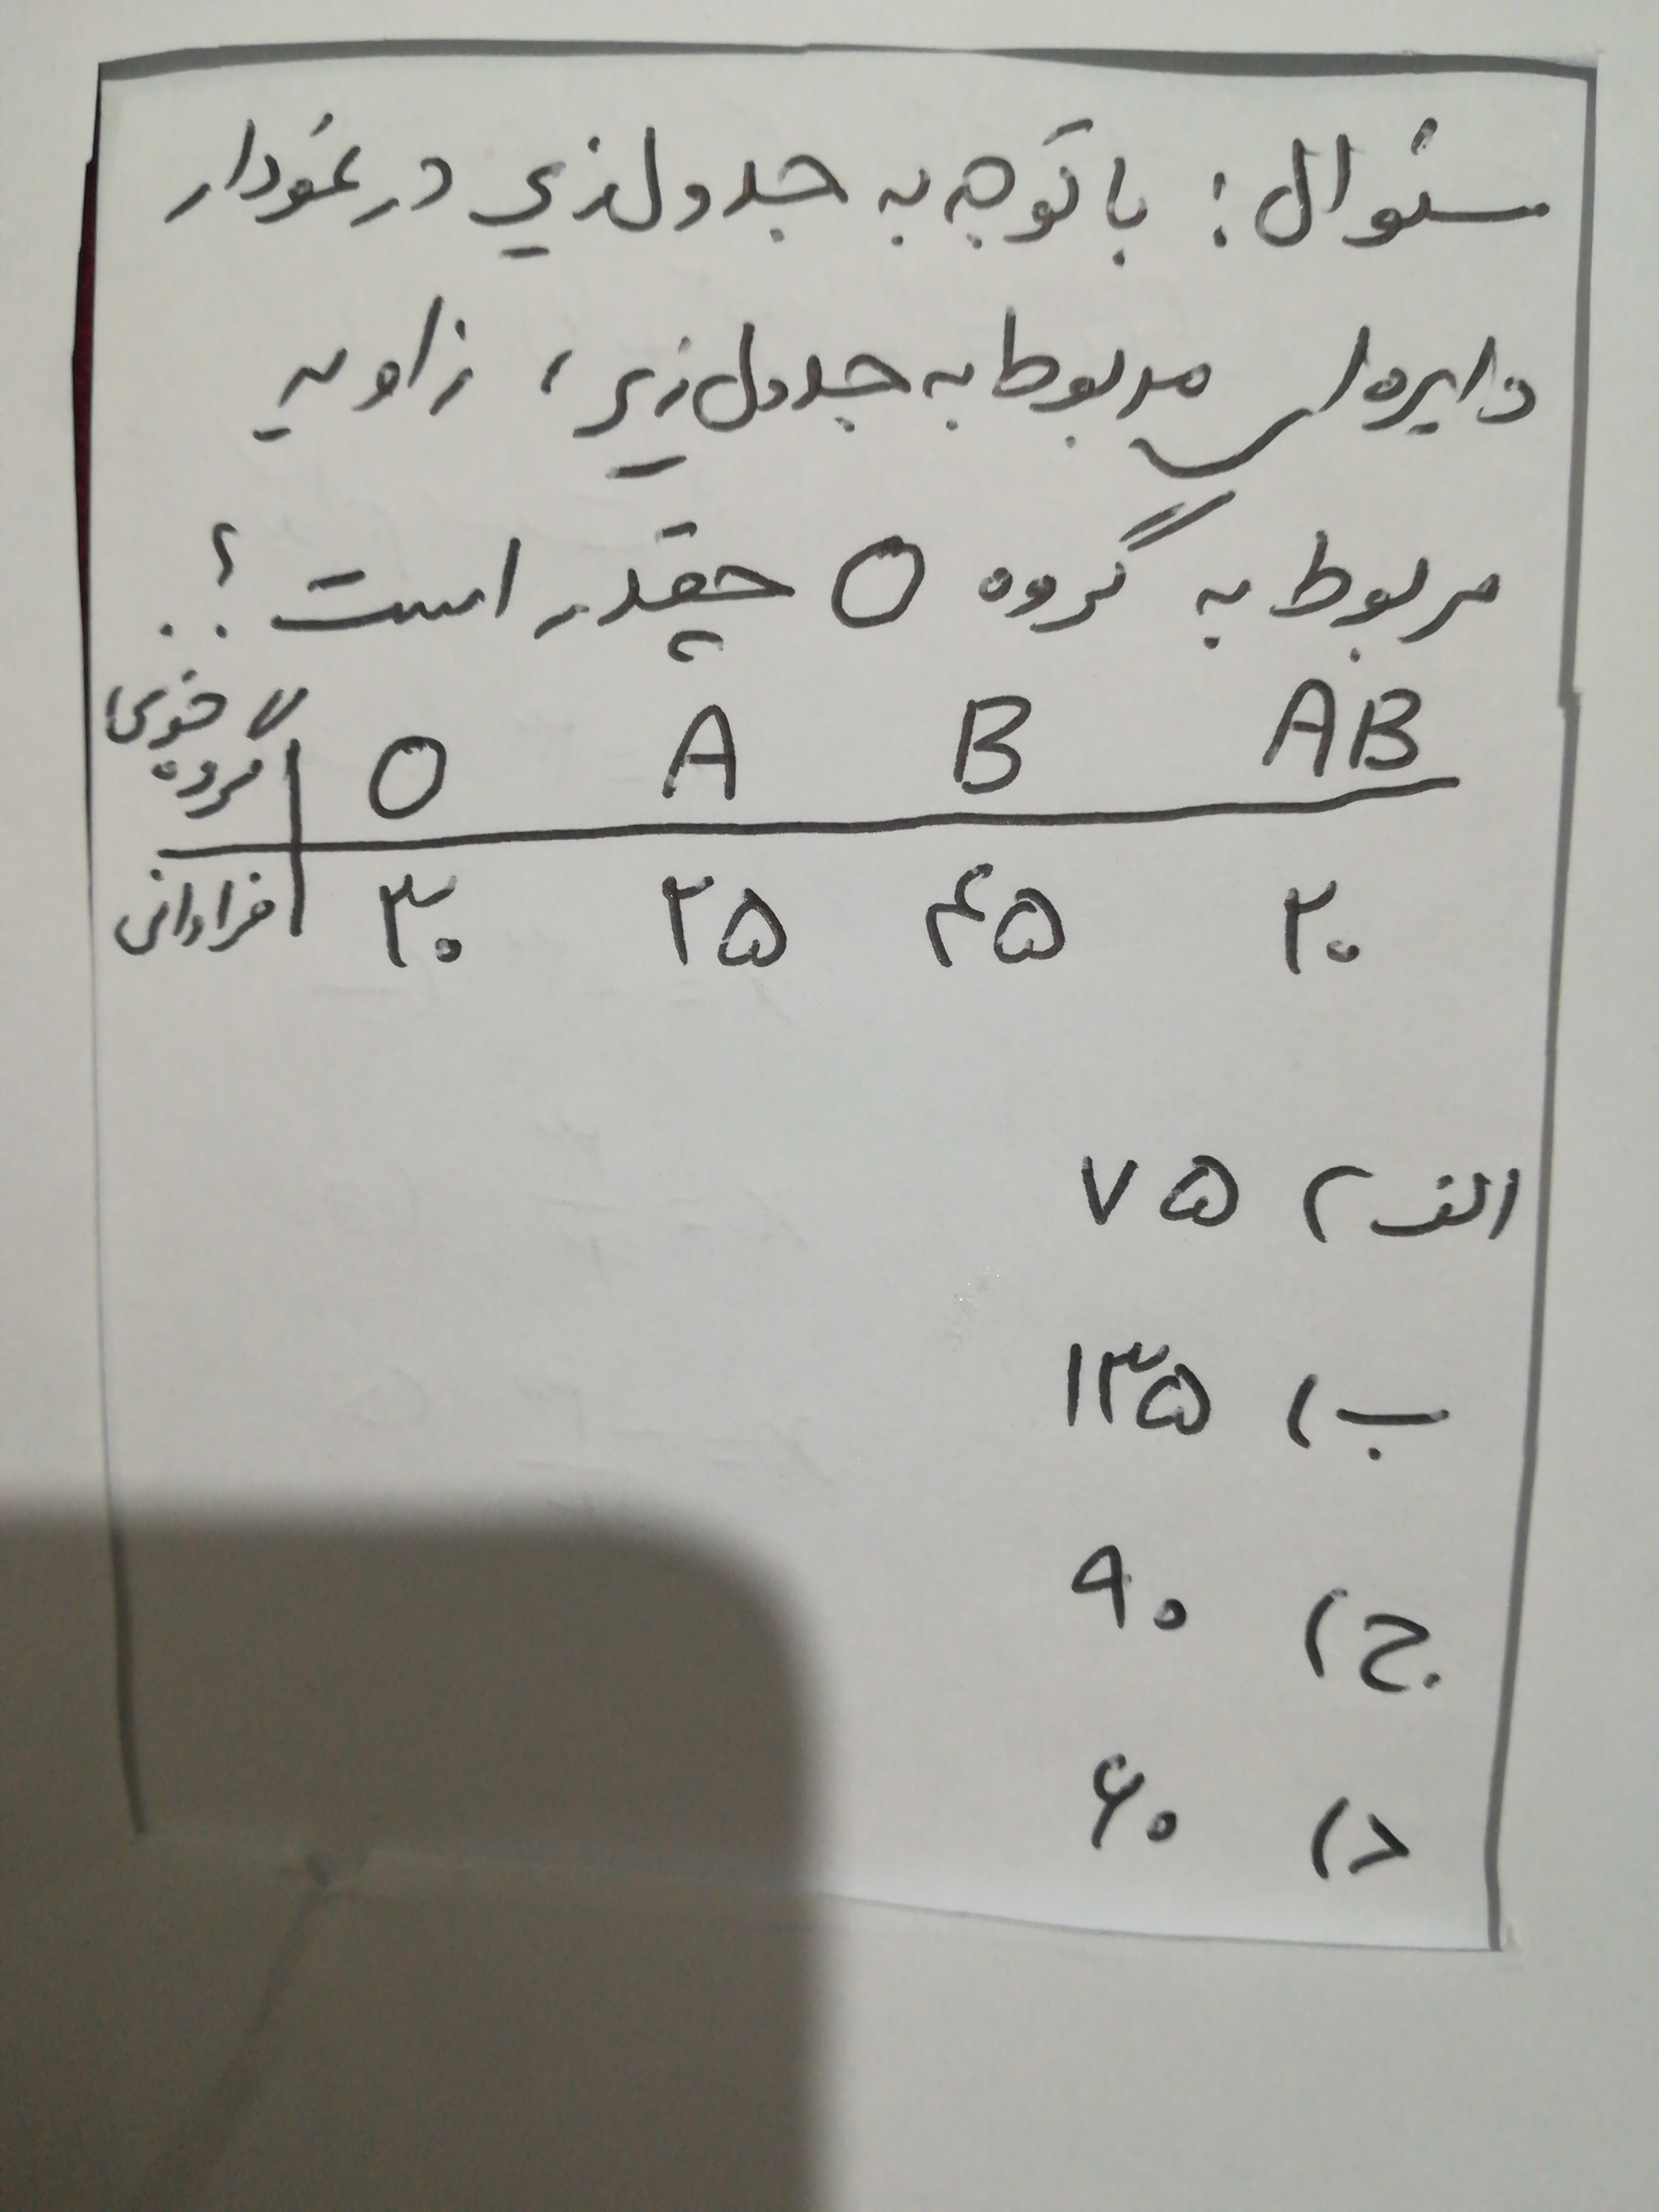 سئوال: با توجه به جدول زیر در نمودار
دایره‌ای مربوط به جدول زیر، زاویه
مربوط به گروه O چقدر است؟
گروه خونی O A B AB
فراوانی ۳۰ ۲۵ ۴۵ ۲۰
الف) ۷۵
ب) ۱۳۵
ج) ۹۰
د) ۶۰